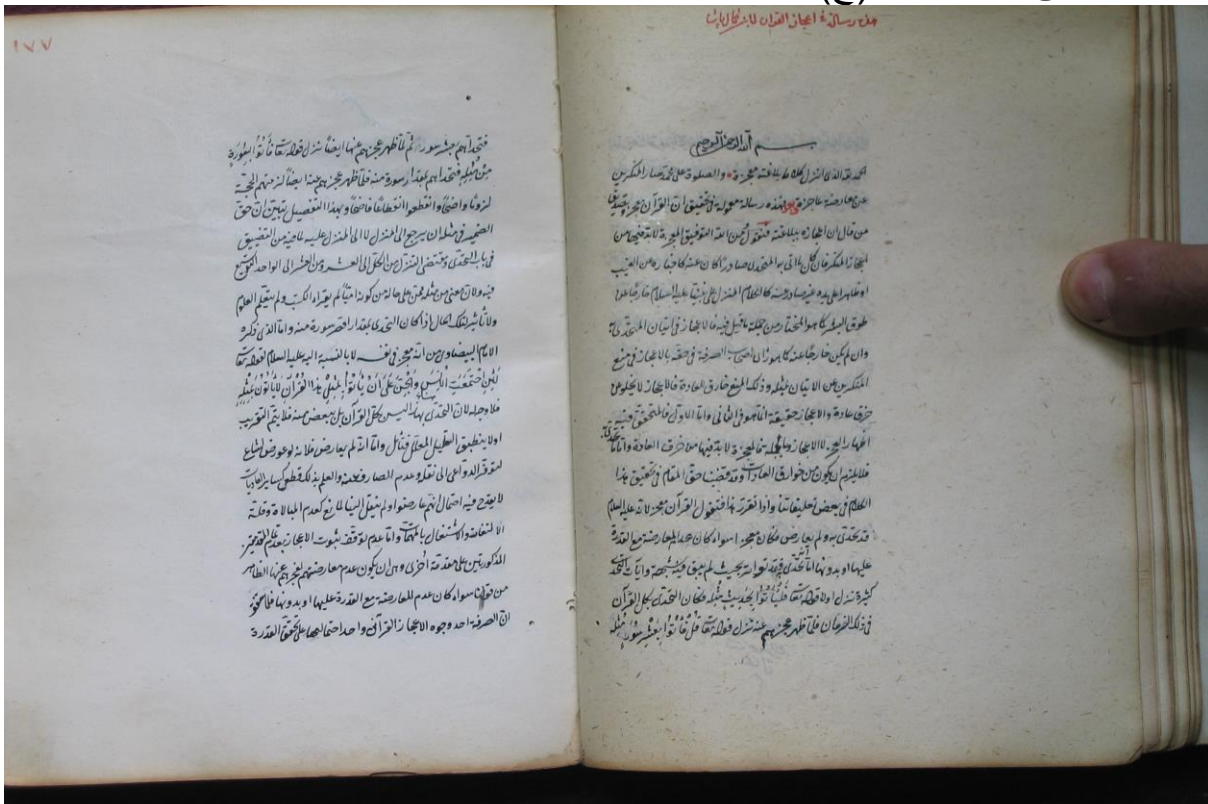 (ع)
هذه رسالة في اعجاز القرآن لابن كمال باشا
بسم الله الرحمن الرحيم
الحمد لله الذي انزل كلاما بلاغته معجزة والصلوة على محمد صار المنكرين
عن معارضته عاجزة وبعد فهذه رسالة معمولة في تحقيق ان القرآن معجز وتصديق
من قال ان اعجازه ببلاغته فنقول ومن الله التوفيق المعجزة لا بد فيها من
اعجاز المنكر فان كل ما اتى به المتحدي صادرا كان عنه كاخباره من الغيب
او ظاهرا على يده غير صادر عنه كالكلام المنزل على نبينا عليه السلام خارجا عن
طوق البشر كما هو المختار من جملة ما قيل فيه فالاعجاز في اتيان المتحدي به
وان لم يكن خارجا عنه كما هو رأي اصحاب الصرفة في حقه فالاعجاز في منع
المنكرين عن الاتيان بمثله وذلك المنع خارق العادة فالاعجاز لا يخلو عن
خرق عادة والاعجاز حقيقة انما هو في الثاني واما الاول فالمتحقق فيه
اظهار العجز لا الاعجاز وبالجملة فالمعجزة لا بد فيها من خرق العادة واما
فلا يلزم ان يكون من خوارق العادات وقد قضينا حق المقام في تحقيق هذا
الكلام في بعض تعليقاتنا واذا تقرر هذا فنقول القرآن معجز لانه عليه السلام
قد تحدى به ولم يعارض فكان معجزا سواء كان عدم المعارضة مع القدرة
عليها او بدونها اما انه تحدى فقد تواتر بحيث لم يبق فيه شبهة وآيات التحدي
كثيرة نزل اولا قوله تعا فليأتوا بحديث مثله فكان التحدي بكل القرآن
في ذلك الفرمان فلما ظهر عجزهم عنه نزل قوله تعا قل فأتوا بعشر سور مثله
١٧٧
فتحداهم بعشر سور ثم لما ظهر عجزهم عنها ايضا نزل قوله تعا فأتوا بسورة
من مثله فتحداهم بمقدار سورة منه فلما ظهر عجزهم عنه ايضا لزمتهم الحجة
لزوما واضحا وانقطعوا انقطاعا فاضحا وبهذا التفصيل تبين ان حق
الضمير في مثله ان يرجع الى المنزل لا الى المنزل عليه لما فيه من التضييق
في باب التحدي ومقتضى التنزل من الكل الى العشر ومن العشر الى الواحد التوسيع
فيه ولان معنى من مثله ممن على حاله من كونه اميا لم يقرأ الكتب ولم يتعلم العلوم
ولا تأثير لتلك الحال اذا كان التحدي بمقدار اقصر سورة منه واما الذي ذكره
الامام البيضاوي من انه معجز في نفسه لا بالنسبة اليه عليه السلام لقوله تعا
لئن اجتمعت الانس والجن على ان يأتوا بمثل هذا القرآن لا يأتون بمثله
فلا وجه له لان التحدي بهذا ليس بكل القرآن بل ببعض منه فلا يتم التقريب
او لا ينطبق التعليل المعلل فتأمل واما انه لم يعارض فلانه لو عورض لشاع
لتوفر الدواعي الى نقله وعدم الصارف عنه والعلم بذلك قطعي كسائر العاديات
لا يقدح فيه احتمال انهم عارضوا ولم ينقل الينا لمانع كعدم المبالاة وقلة
الالتفات والاشتغال بالمهمات واما عدم توقف ثبوت الاعجاز بعد
المذكورتين على مقدمة اخرى وهي ان يكون عدم معارضتهم لعجزهم عنها الظاهر
من قولنا سواء كان عدم المعارضة مع القدرة عليها او بدونها
ان الصرفة احد وجوه الاعجاز القرآني واحد احتماليها على تحقق القدرة